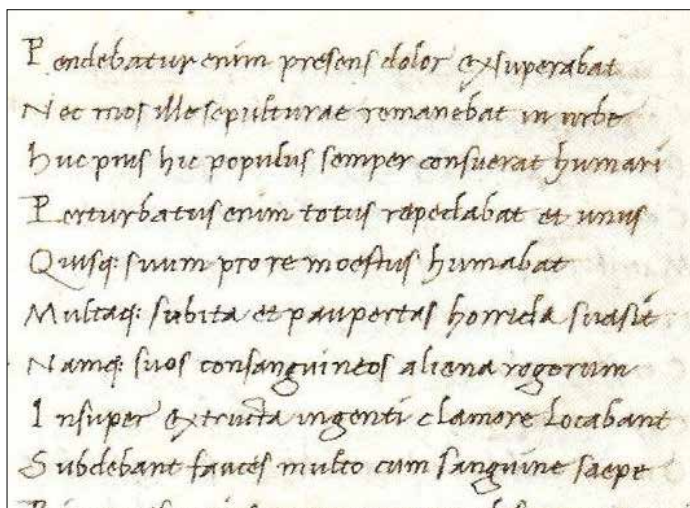 Pendebatur enim presens dolor exsuperabat
Nec mos ille sepulturae remanebat in urbe
Huc pius hic populus semper consuerat humari
Perturbatus enim totus repedabat et unus
Quisq: suum pro re moestus humabat
Multaq: subita et paupertas horrida suasit
Namq: suos consanguineos aliena rogorum
Insuper extructa ingenti clamore locabant
Subdebant fauces multo cum sanguine saepe